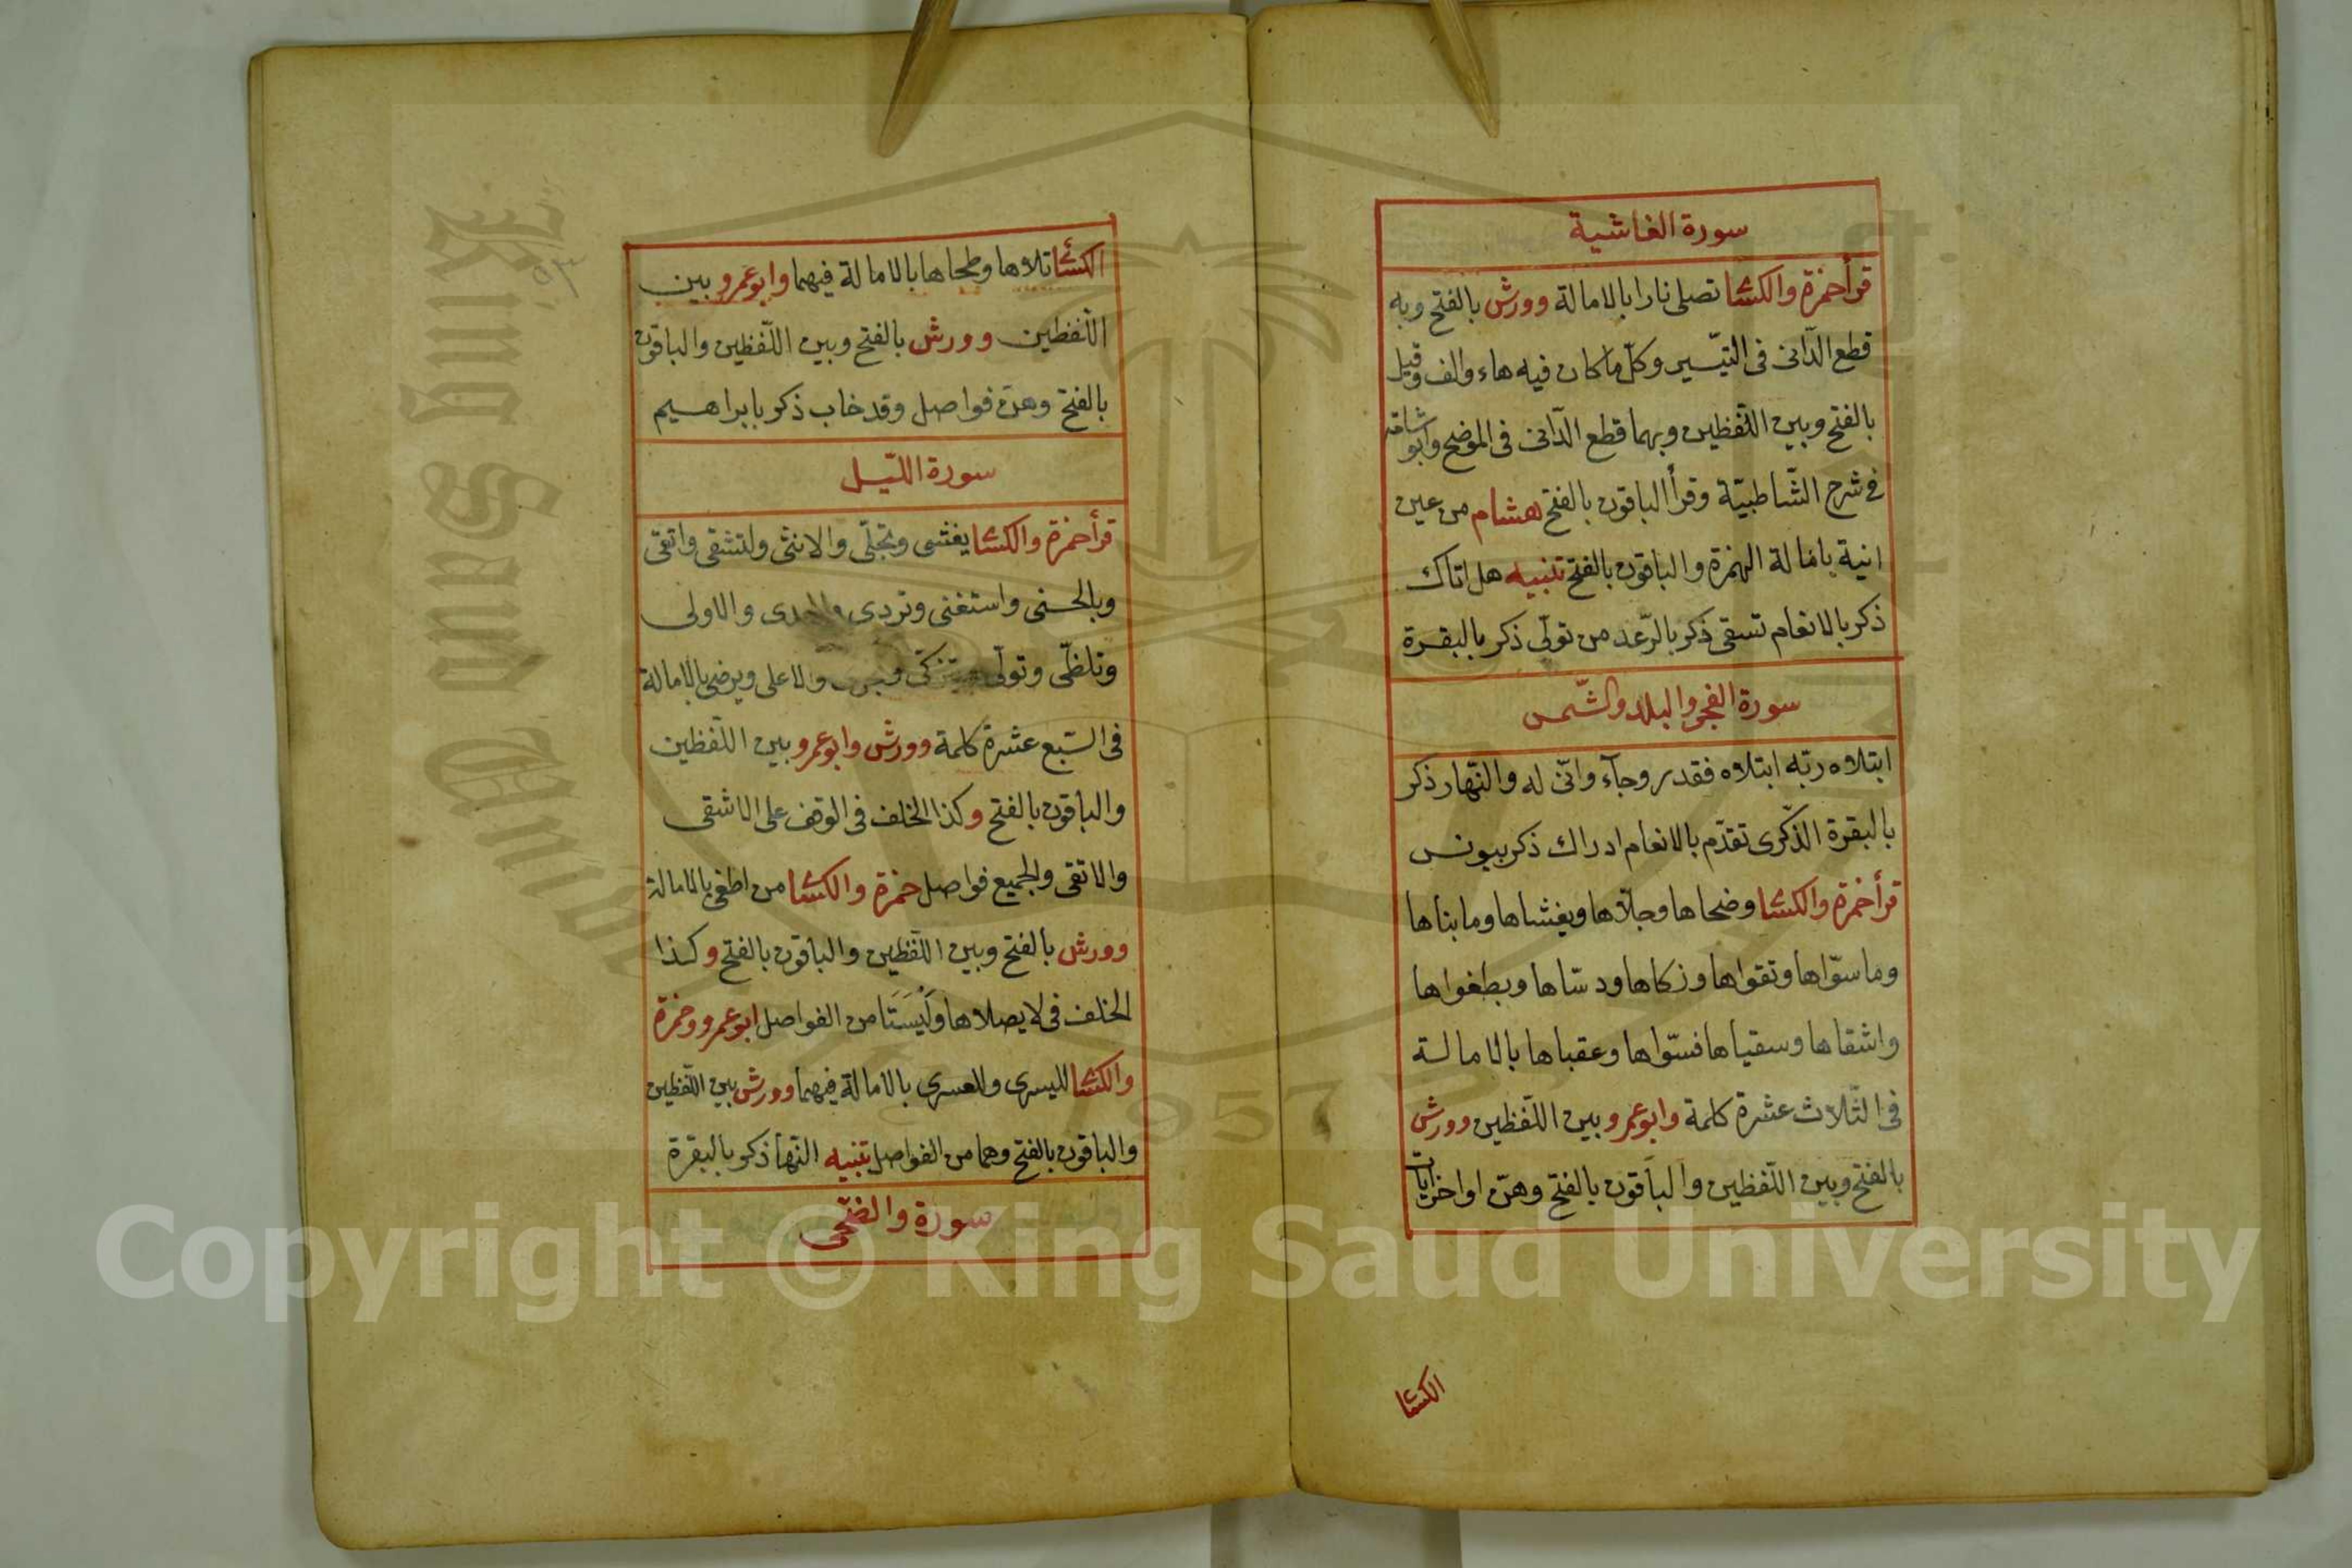 سورة الغاشية
قرأ حمزة والكسائ تصلى نارا بالامالة وورش بالفتح وبه
قطع الدّانى فى التيّسير وكلّ ما كان فيه هاء والف وقيل
بالفتح وبين اللّفظين وبهما قطع الدّانى فى الموضح وابو شامة
فى شرح الشّاطبيّة وقرأ الباقون بالفتح هشام من عين
انية بامالة الهمزة والباقون بالفتح تنبيه هل اتاك
ذكر بالانعام تسقى ذكر بالرّعد من تولّى ذكر بالبقرة
سورة الفجر والبلد والشّمس
ابتلاه ربّه ابتلاه فقدر وجآء وانّى له والنّهار ذكر
بالبقرة الذّكرى تقدّم بالانعام ادراك ذكر بيونس
قرأ حمزة والكسائ وضحاها وجلّاها ويغشاها وما بناها
وما سوّاها وتقواها وزكاها ودسّاها وبطغواها
واشقاها وسقياها فسوّاها وعقباها بالامالة
فى الثّلاث عشرة كلمة وابو عمرو بين اللّفظين وورش
بالفتح وبين اللّفظين والباقون بالفتح وهنّ اواخر ايات
الكسائ
الكسائ تلاها وطحاها بالامالة فيهما وابو عمرو بين
اللّفظين وورش بالفتح وبين اللّفظين والباقون
بالفتح وهنّ فواصل وقد خاب ذكر بابراهيم
سورة اللّيل
قرأ حمزة والكسائ يغشى وتجلّى والانثى ولتشقى واتقى
وبالحسنى واستغنى وتردى والاولى
وتلظّى وتولّى يتزكّى والاعلى ويرضى بالامالة
فى السّبع عشرة كلمة وورش وابو عمرو بين اللّفظين
والباقون بالفتح وكذا الخلف فى الوقف على الاشقى
والاتقى والجميع فواصل حمزة والكسائ من اطغى بالامالة
وورش بالفتح وبين اللّفظين والباقون بالفتح وكذا
الخلف فى لا يصلاها وَلَيْسَتَا من الفواصل ابو عمرو وحمزة
والكسائ لليسرى وللعسرى بالامالة فيهما وورش بين اللّفظين
والباقون بالفتح وهما من الفواصل تنبيه النّها ذكر بالبقرة
سورة والضّحى
٥٣
King Saud University
1957
Copyright © King Saud University